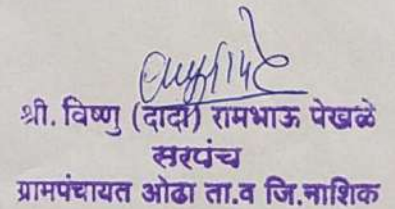 श्री. विष्णु (दादा) रामभाऊ पेखळे
सरपंच
ग्रामपंचायत ओढा ता.व जि.नाशिक